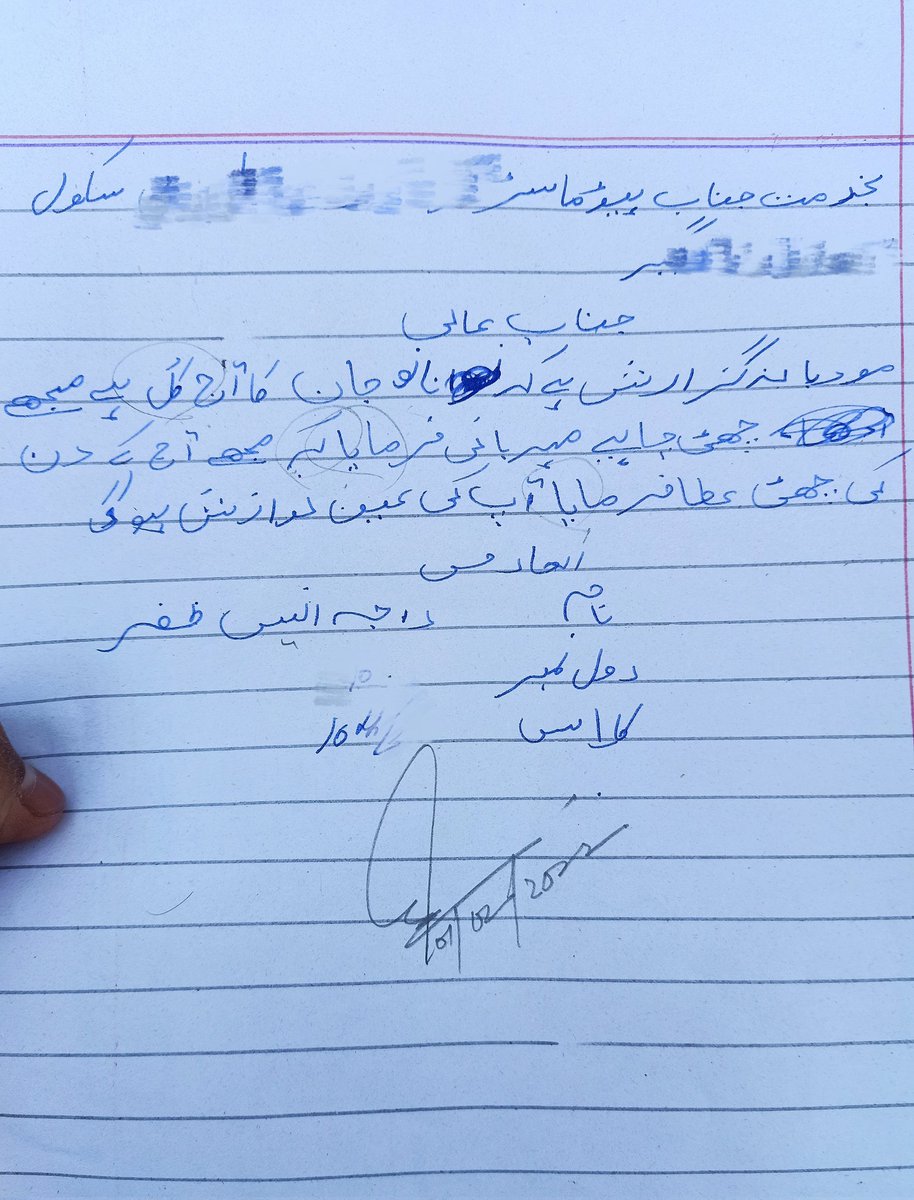 بخدمت جناب ہیڈماسٹر سکول
جناب عالی
مودبانہ گزارش ہے کہ نانو جان کا آج کُل ہے مجھے
چھٹی چاہیے مہربانی فرمایا کہ مجھے آج کے دن
کی چھٹی عطا فرمایا آپ کی عین نوازش ہوگی
العارض
نام راجہ انیس ظفر
رول نمبر
کلاس 10th
01/02/2022